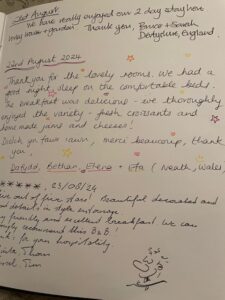 23rd August
We have really enjoyed our 2 day stay here
lovely house + garden. Thank you, Bruce + Sarah
Derbyshire, England.
22nd August 2024
Thank you for the lovely rooms. We had a
good night sleep on the comfortable beds.
The breakfast was delicious - we thoroughly
enjoyed the variety - fresh croissants and
home made jams and cheeses!
Diolch yn fawr iawn, merci beaucoup, thank
you.
Dafydd, Bethan, Elena + Efa (Neath, Wales
*****, 23/08/24
five out of five stars! Beautiful decorated and
details in style
friendly and excellent breakfast. We can
recommend this B&B.
for your hospitality.
Thom
Tim